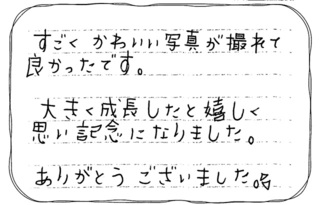 すごく かわいい写真が撮れて
良かったです。
大きく成長したと嬉しく
思い記念になりました。
ありがとう ございました。